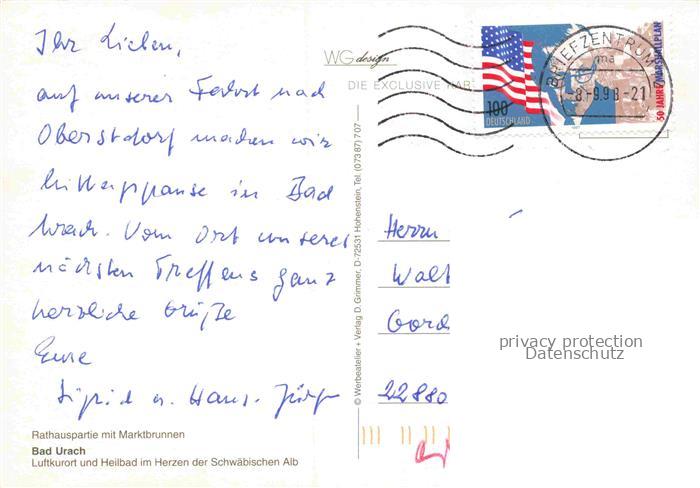 Ihr Lieben,
auf unserer Fahrt nach
Oberstdorf machen wir
Mittagspause in Bad
Urach. Vom Ort unseres
nächsten Treffens ganz
herzliche Grüße
Eure
Sigrid u. Hans-Jürgen
Rathauspartie mit Marktbrunnen
Bad Urach
Luftkurort und Heilbad im Herzen der Schwäbischen Alb
WG design
DIE EXCLUSIVE KARTE
© Werbeatelier + Verlag D. Grimmer, D-72531 Hohenstein, Tel. (07387) 707
100
DEUTSCHLAND
50 JAHRE MARSHALLPLAN
BRIEFZENTRUM
ma
-8.-9.98-21
Herrn
Walt
Gord
22880
privacy protection
Datenschutz